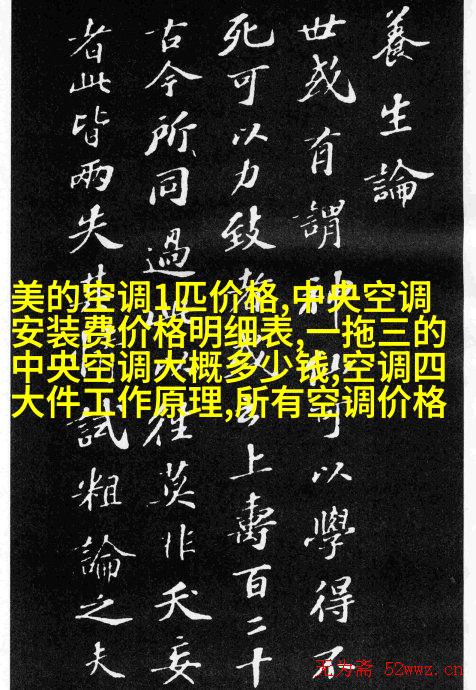 養生論
世或有謂神可以學得不
死可以力致或云上壽百二十
古今所同過此以往莫非夭妄
者此皆兩失其試粗論之夫
美的空调1匹价格,中央空调
安装费价格明细表,一拖三的
中央空调大概多少钱,空调四
大件工作原理,所有空调价格
无为斋 52wwz.cn